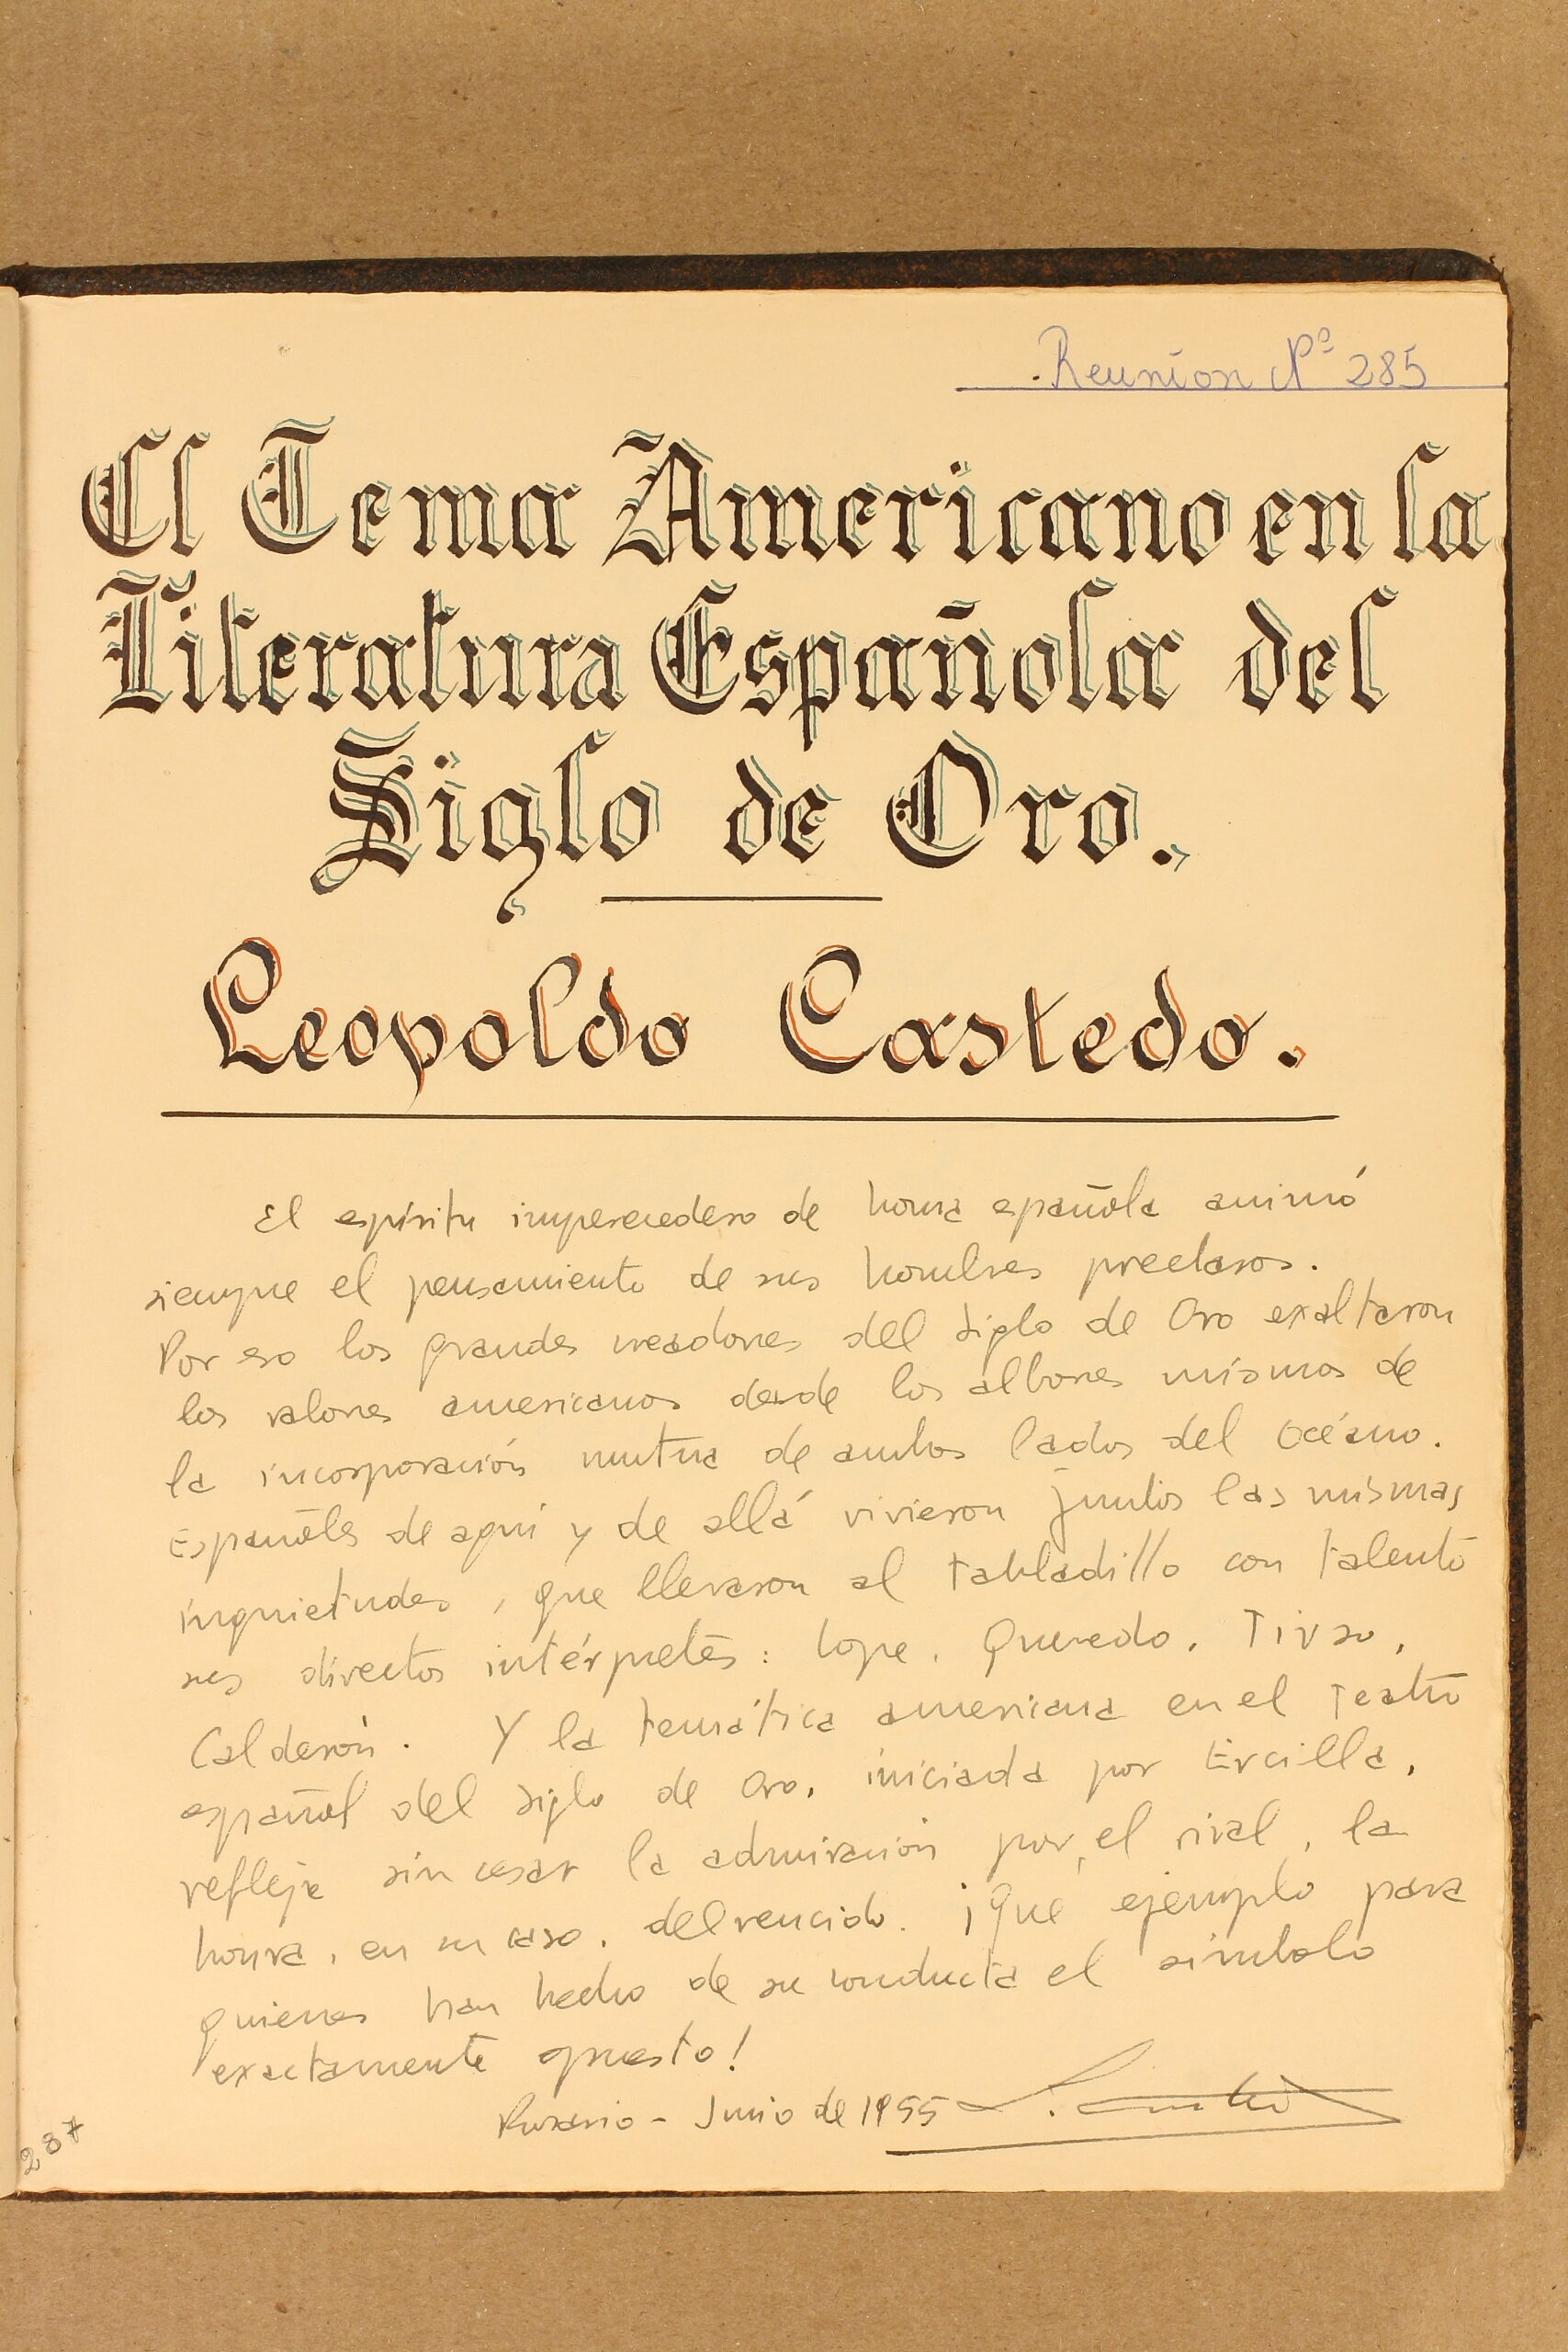 Reunion Nº 285
El Tema Americano en la
Literatura Española del
Siglo de Oro.
Leopoldo Castedo.
El espíritu imperecedero de honra española animó
siempre el pensamiento de sus hombres preclaros.
Por eso los grandes creadores del Siglo de Oro exaltaron
los valores americanos desde los albores mismos de
la incorporación mutua de ambos lados del Océano.
Españoles de aquí y de allá vivieron juntos las mismas
inquietudes, que llevaron al tabladillo con talento
sus directos intérpretes: Lope, Quevedo, Tirso,
Calderón. Y la temática americana en el Teatro
español del Siglo de Oro, iniciada por Ercilla,
refleja sin cesar la admiración por el rival, la
honra, en su caso, del vencido. ¡Que ejemplo para
quienes han hecho de su conducta el símbolo
exactamente opuesto!
Rosario - Junio de 1955
287